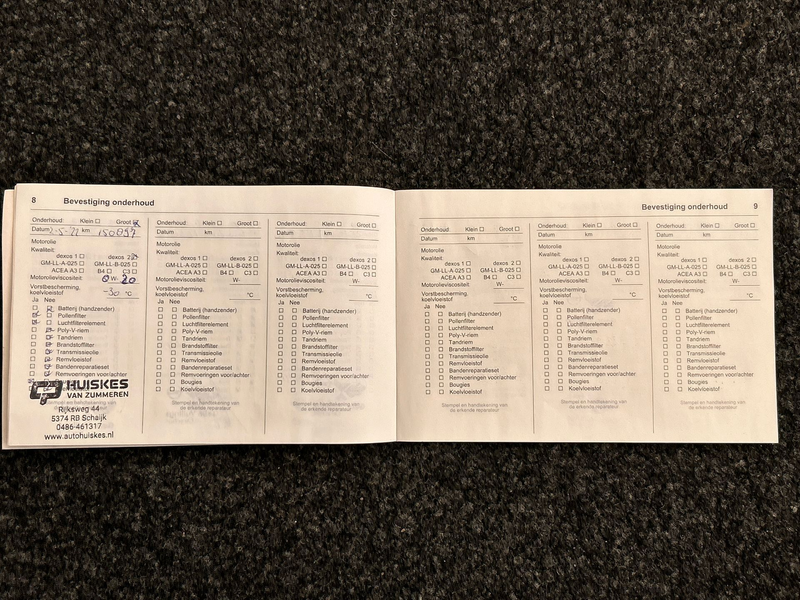 8 Bevestiging onderhoud
Onderhoud: Klein Groot
Datum 2-5-22 km 150897
Motorolie
Kwaliteit:
dexos 1 dexos 2
GM-LL-A-025 GM-LL-B-025
ACEA A3 B4 C3
Motorolieviscositeit: 0 W- 20
Vorstbescherming,
koelvloeistof -30 °C
Ja Nee
Batterij (handzender)
Pollenfilter
Luchtfilterelement
Poly-V-riem
Tandriem
Brandstoffilter
Transmissieolie
Remvloeistof
Bandenreparatieset
Remvoeringen voor/achter
HUISKES
VAN ZUMMEREN
Rijksweg 44
5374 RB Schaijk
0486-461317
www.autohuiskes.nl
Onderhoud: Klein Groot
Datum km
Motorolie
Kwaliteit:
dexos 1 dexos 2
GM-LL-A-025 GM-LL-B-025
ACEA A3 B4 C3
Motorolieviscositeit: W-
Vorstbescherming,
koelvloeistof °C
Ja Nee
Batterij (handzender)
Pollenfilter
Luchtfilterelement
Poly-V-riem
Tandriem
Brandstoffilter
Transmissieolie
Remvloeistof
Bandenreparatieset
Remvoeringen voor/achter
Bougies
Koelvloeistof
Stempel en handtekening van
de erkende reparateur
Onderhoud: Klein Groot
Datum km
Motorolie
Kwaliteit:
dexos 1 dexos 2
GM-LL-A-025 GM-LL-B-025
ACEA A3 B4 C3
Motorolieviscositeit: W-
Vorstbescherming,
koelvloeistof °C
Ja Nee
Batterij (handzender)
Pollenfilter
Luchtfilterelement
Poly-V-riem
Tandriem
Brandstoffilter
Transmissieolie
Remvloeistof
Bandenreparatieset
Remvoeringen voor/achter
Bougies
Koelvloeistof
Stempel en handtekening van
de erkende reparateur
Bevestiging onderhoud 9
Onderhoud: Klein Groot
Datum km
Motorolie
Kwaliteit:
dexos 1 dexos 2
GM-LL-A-025 GM-LL-B-025
ACEA A3 B4 C3
Motorolieviscositeit: W-
Vorstbescherming,
koelvloeistof °C
Ja Nee
Batterij (handzender)
Pollenfilter
Luchtfilterelement
Poly-V-riem
Tandriem
Brandstoffilter
Transmissieolie
Remvloeistof
Bandenreparatieset
Remvoeringen voor/achter
Bougies
Koelvloeistof
Stempel en handtekening van
de erkende reparateur
Onderhoud: Klein Groot
Datum km
Motorolie
Kwaliteit:
dexos 1 dexos 2
GM-LL-A-025 GM-LL-B-025
ACEA A3 B4 C3
Motorolieviscositeit: W-
Vorstbescherming,
koelvloeistof °C
Ja Nee
Batterij (handzender)
Pollenfilter
Luchtfilterelement
Poly-V-riem
Tandriem
Brandstoffilter
Transmissieolie
Remvloeistof
Bandenreparatieset
Remvoeringen voor/achter
Bougies
Koelvloeistof
Stempel en handtekening van
de erkende reparateur
Onderhoud: Klein Groot
Datum km
Motorolie
Kwaliteit:
dexos 1 dexos 2
GM-LL-A-025 GM-LL-B-025
ACEA A3 B4 C3
Motorolieviscositeit: W-
Vorstbescherming,
koelvloeistof °C
Ja Nee
Batterij (handzender)
Pollenfilter
Luchtfilterelement
Poly-V-riem
Tandriem
Brandstoffilter
Transmissieolie
Remvloeistof
Bandenreparatieset
Remvoeringen voor/achter
Bougies
Koelvloeistof
Stempel en handtekening van
de erkende reparateur